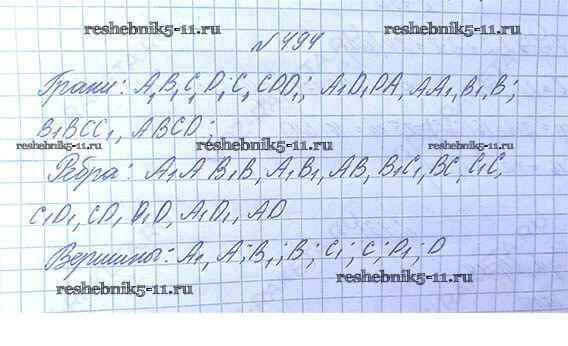 reshebnik5-11.ru reshebnik5-11.ru
№ 494
Грани: A₁B₁C₁D₁; C₁CDD₁; A₁D₁DA, AA₁B₁B;
B₁BCC₁, ABCD;
reshebnik5-11.ru reshebnik5-11.ru reshebnik5-11.ru
Ребра: A₁A B₁B, A₁B₁, AB, B₁C₁, BC, C₁C,
reshebnik5-11.ru
C₁D₁, CD, D₁D, A₁D₁, AD
reshebnik5-11.ru
Вершины: A₁, A; B₁; B; C₁; C; D₁; D
reshebnik5-11.ru reshebnik5-11.ru